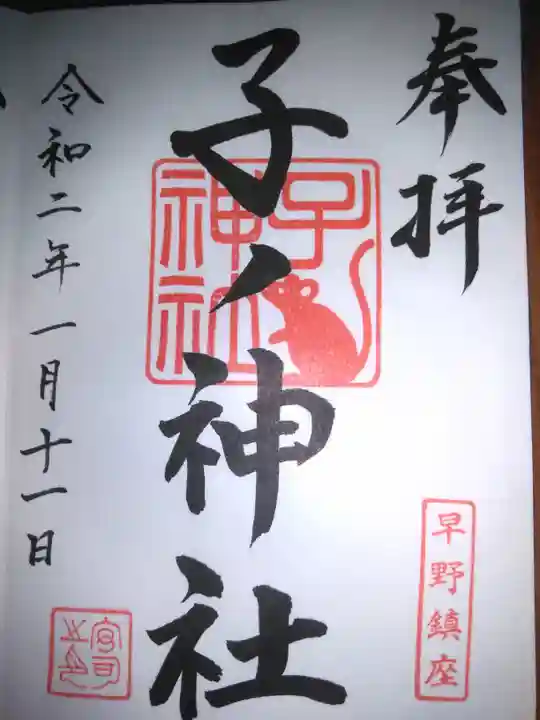 奉拝
早野鎮座
子ノ神社
子神社
令和二年一月十一日
宮司之印